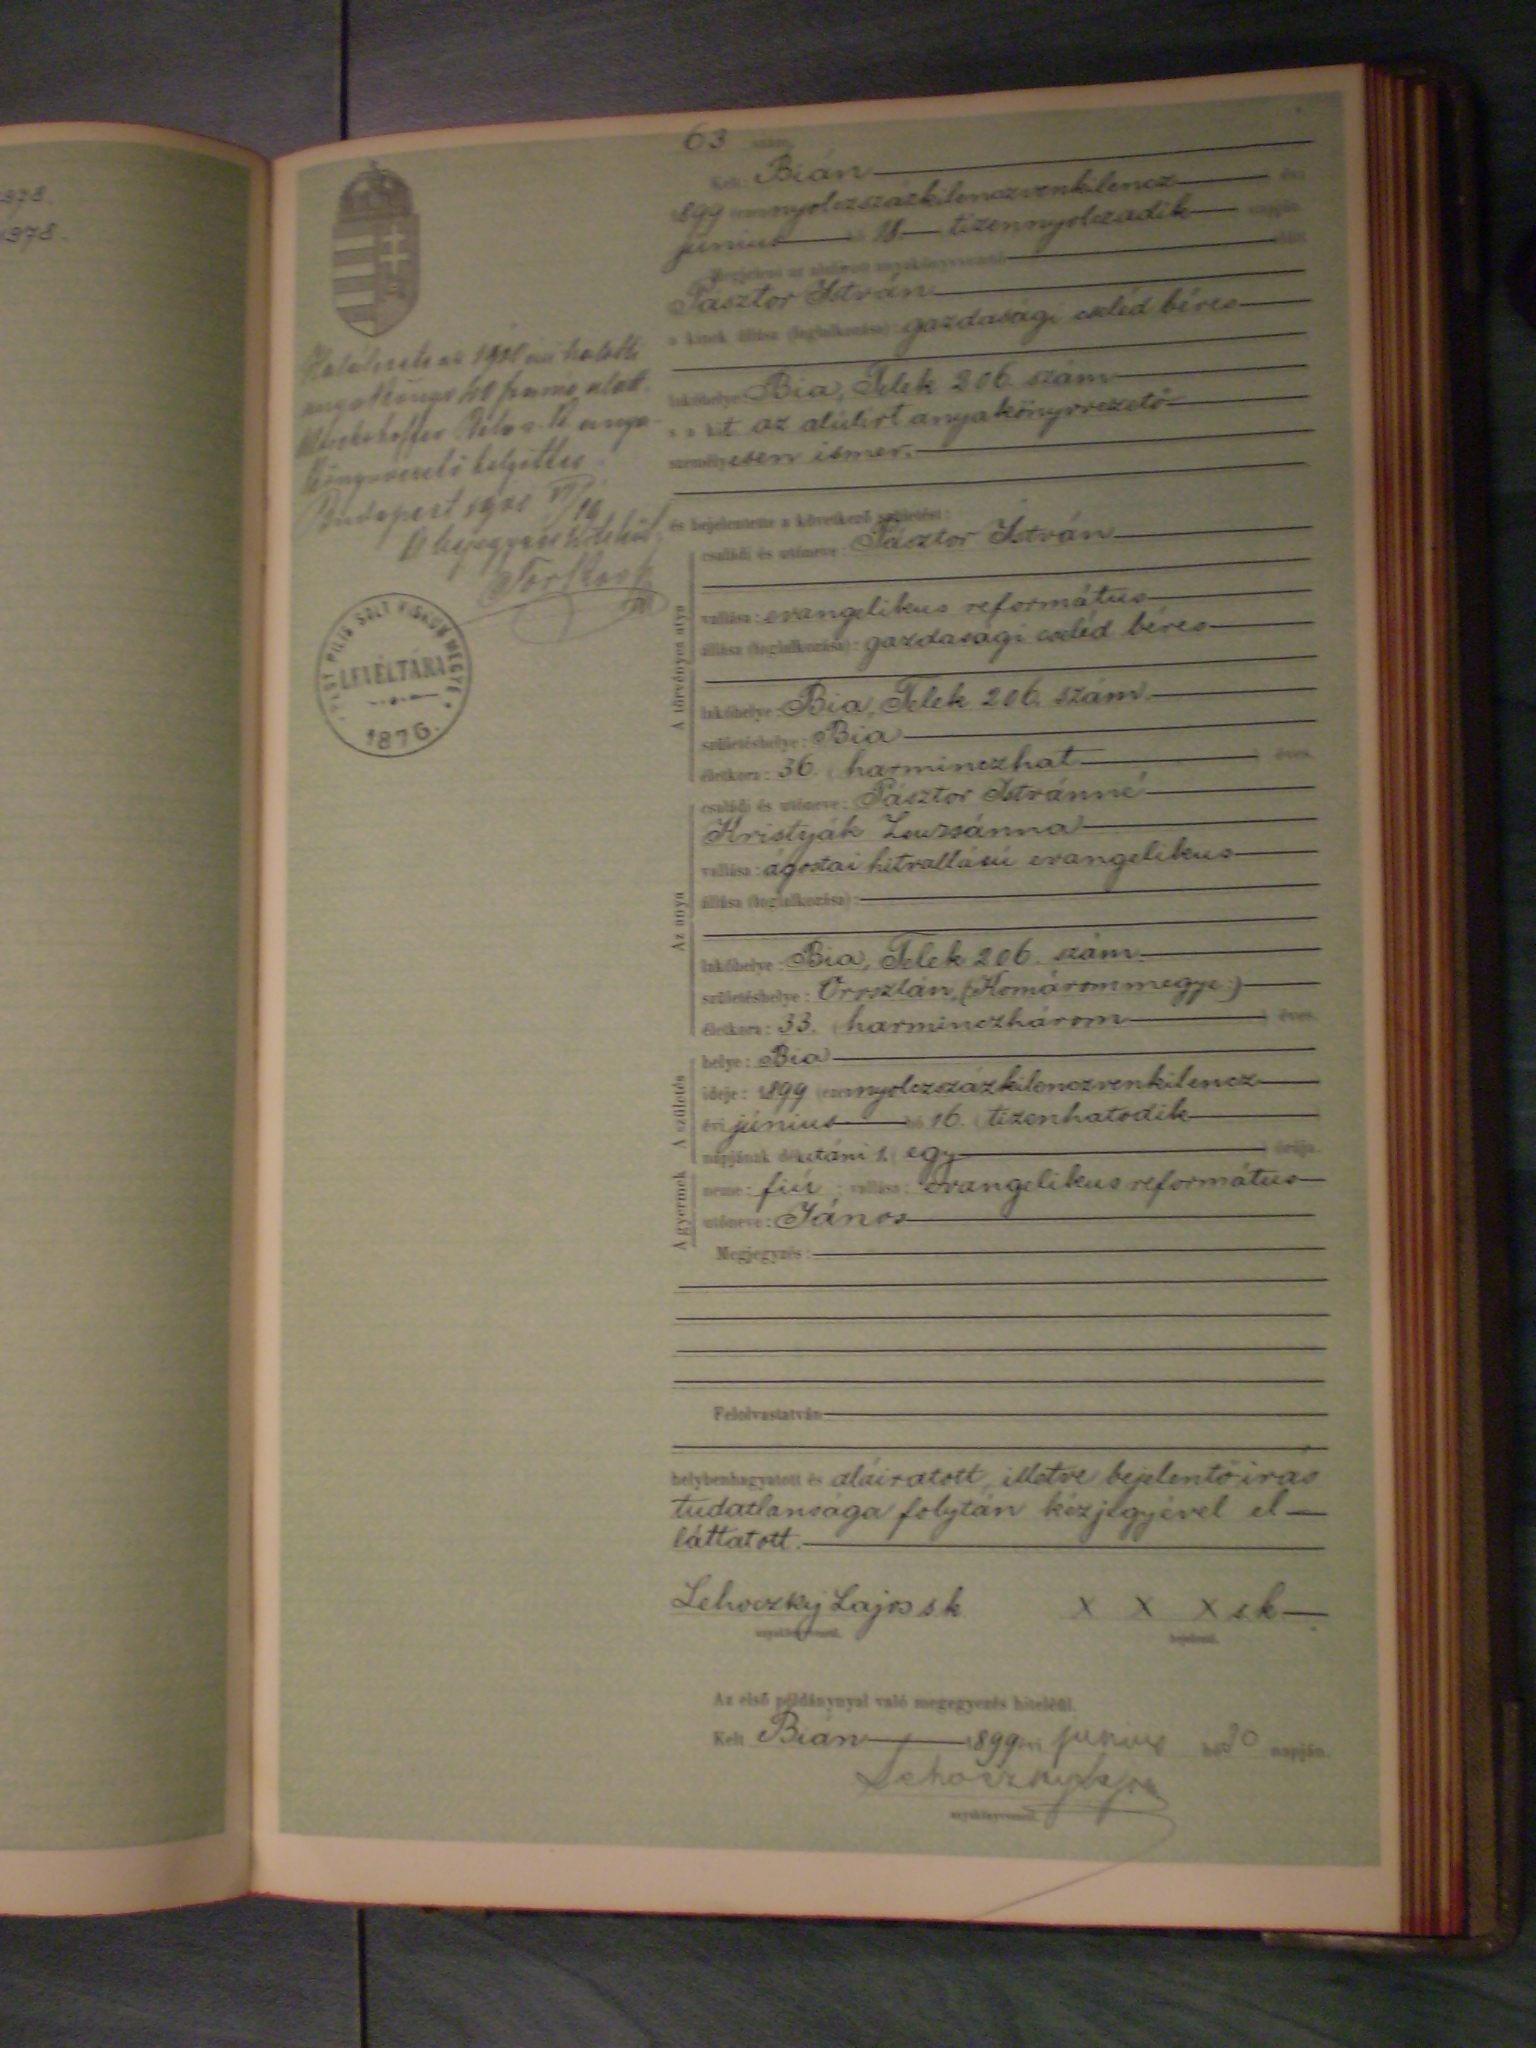 1978.
1978.
63 szám.
Kelt: Bián
1899 ezernyolczszázkilenczvenkilencz évi
június hó 18. tizennyolczadik napján.
Megjelent az alulírott anyakönyvvezető előtt
Pásztor István
a kinek állása (foglalkozása): gazdasági cseléd béres
lakóhelye: Bia, Telek 206. szám
s a kit az alúlírt anyakönyvvezető
személyesen ismer.
és bejelentette a következő születést:
A törvényes atya
családi és utóneve: Pásztor István
vallása: evangelikus református
állása (foglalkozása): gazdasági cseléd béres
lakóhelye: Bia, Telek 206. szám
születéshelye: Bia
életkora: 36. harminczhat éves.
Az anya
családi és utóneve: Pásztor Istvánné
Kristyák Zsuzsánna
vallása: ágostai hitvallású evangelikus
állása (foglalkozása):
lakóhelye: Bia, Telek 206. szám
születéshelye: Oroszlán, (Komárommegye)
életkora: 33. harminczhárom éves.
A születés
helye: Bia
ideje: 1899 ezernyolczszázkilenczvenkilencz
évi június hó 16. tizenhatodik
napjának délutáni 1. egy órája.
A gyermek
neme: fiú; vallása: evangelikus református
utóneve: János
Megjegyzés:
Felolvastatván
helybenhagyatott és aláiratott, illetve bejelentő irás
tudatlansága folytán kézjegyével el-
láttatott.
Lehoczky Lajos sk x x x sk
anyakönyvvezető. bejelentő.
Az első példánynyal való megegyezés hiteléül.
Kelt Bián 1899 évi június hó 30 napján
Lehoczky Lajos
anyakönyvvezető.
anyakönyv
Budapest
PEST PILIS SOLT KISKUN MEGYE
LEVÉLTÁRA
1876.